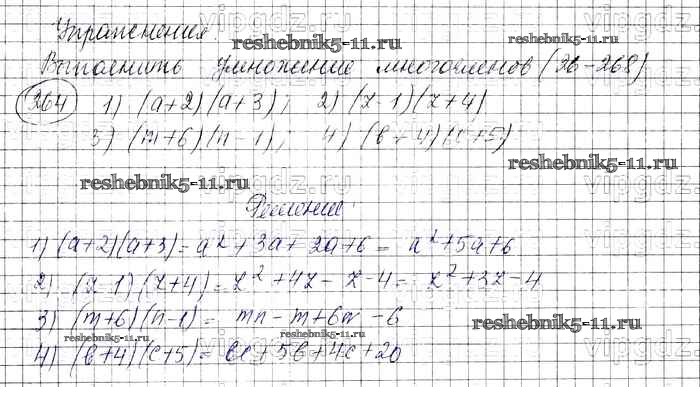 Упражнения
reshebnik5-11.ru
reshebnik5-11.ru
Выполнить умножение многочленов (26-268)
264 1) (a+2)(a+3); 2) (z-1)(z+4)
3) (m+6)(n-1); 4) (b+4)(c+5)
reshebnik5-11.ru
reshebnik5-11.ru
vipgdz.ru
Решение:
1) (a+2)(a+3)= a²+3a+2a+6 = a²+5a+6
2) (z-1)(z+4)= z²+4z-z-4= z²+3z-4
3) (m+6)(n-1)= mn-m+6n-6
reshebnik5-11.ru
reshebnik5-11.ru
reshebnik5-11.ru
4) (b+4)(c+5)= bc+5b+4c+20
vipgdz.ru